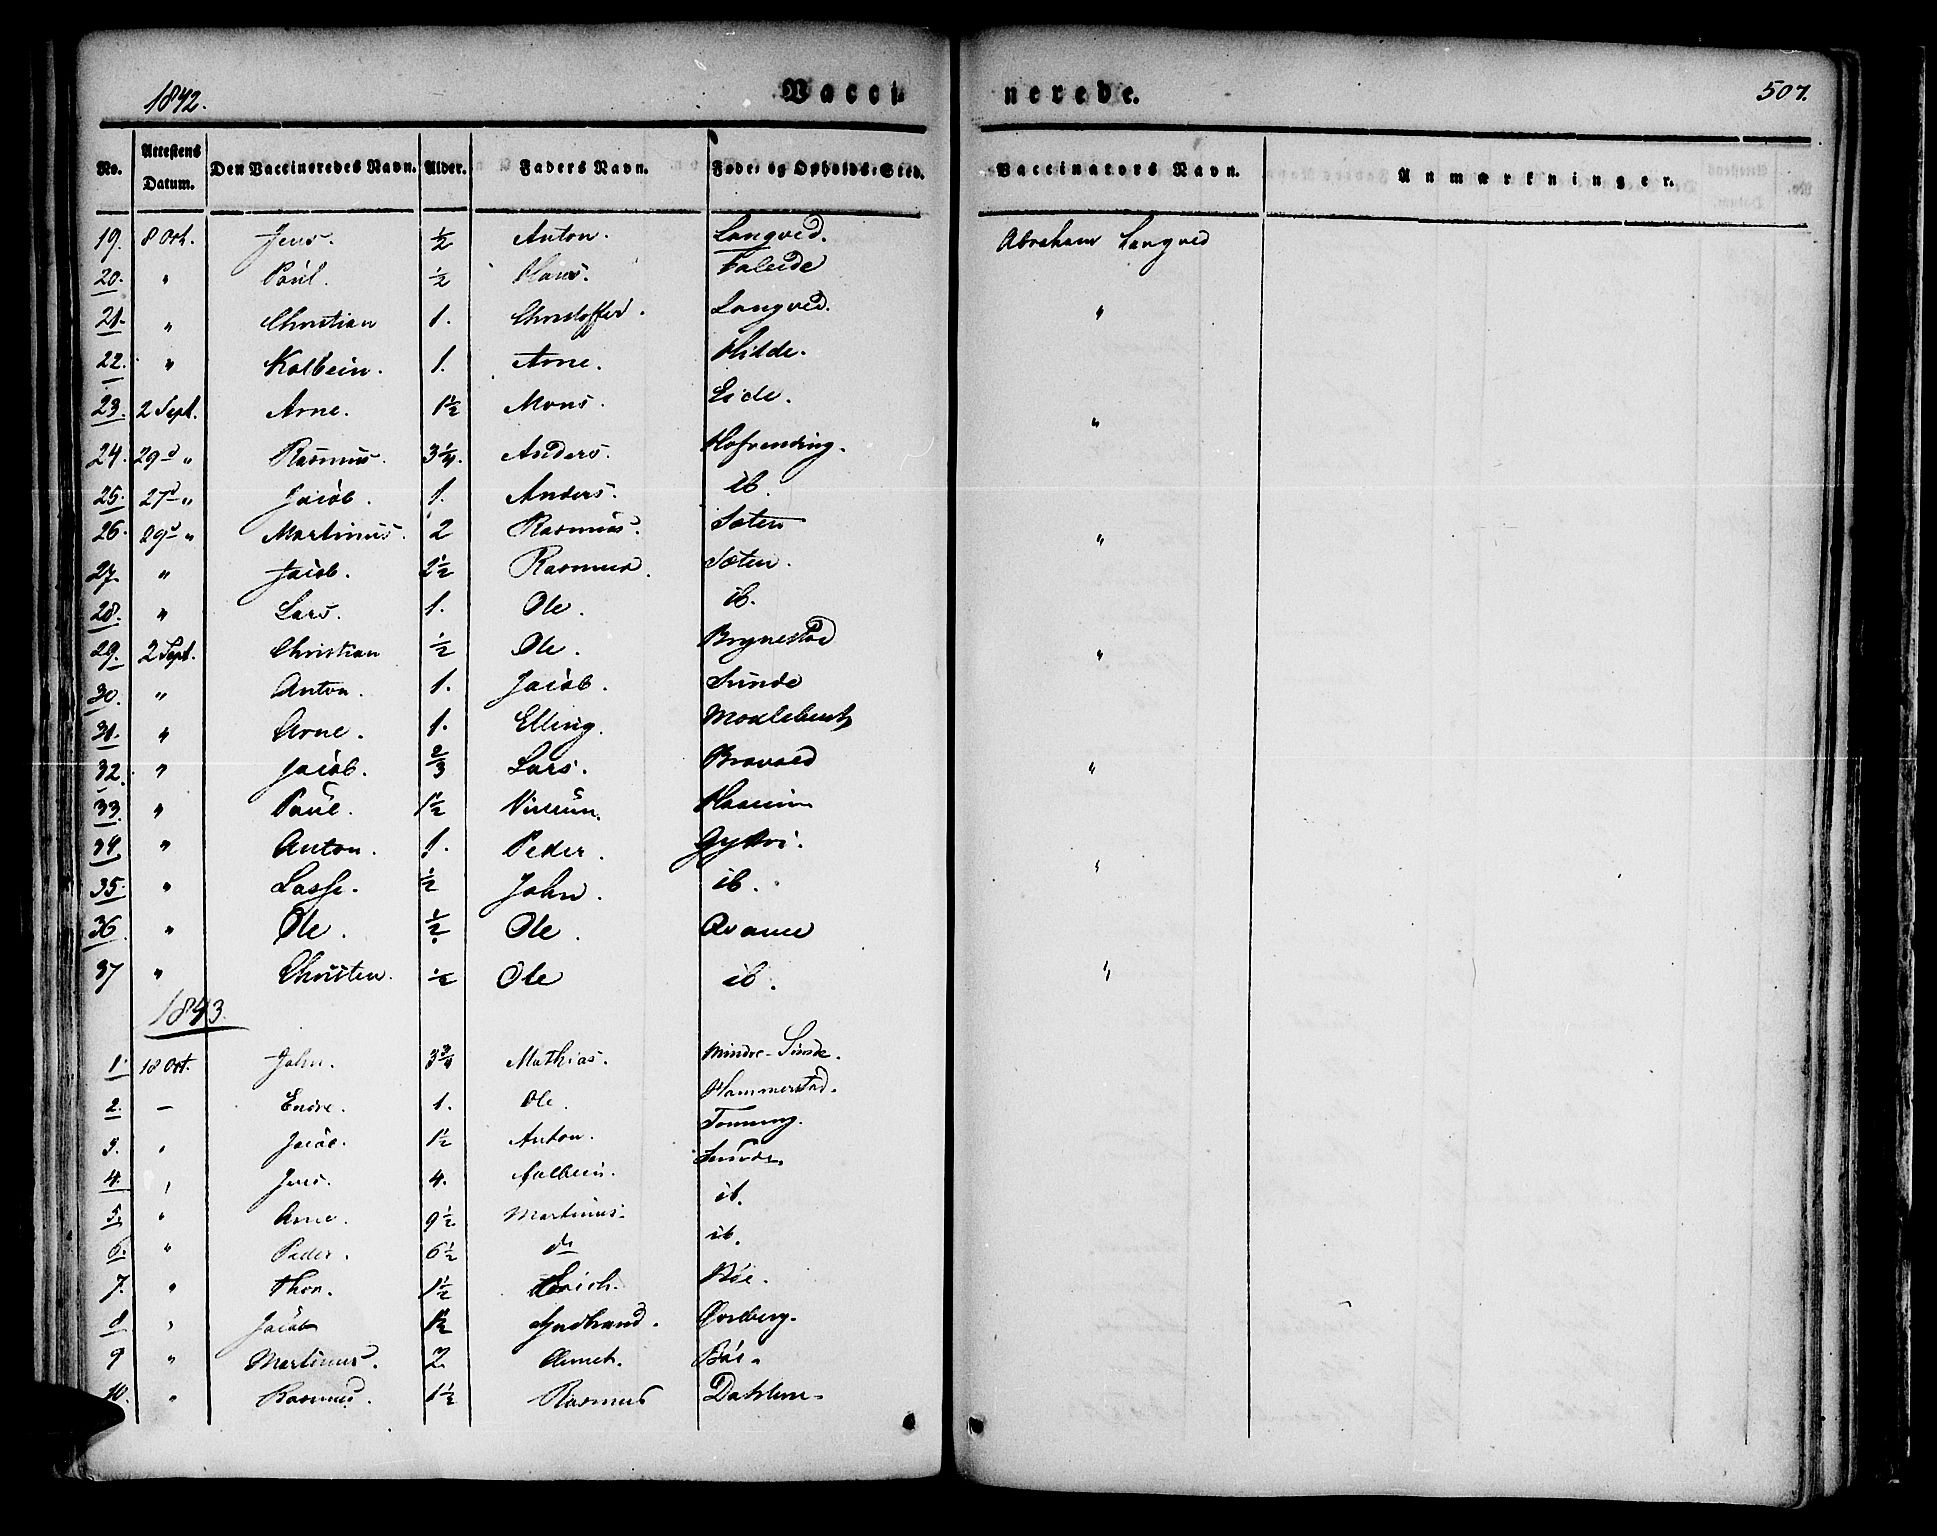 1842. Vacci- nerede. 507.
No. Attestens Datum. Den Vaccineredes Navn. Alder. Faders Navn. Føde- og Opholds-Sted. Vaccinators Navn. Anmærkninger.
19. 8 Oct. Jens. ½ Anton. Langved. Abraham Langved
20. " Paul. ½ Hans. Faleide
21. " Christian 1. Christoffer. Langved. "
22. " Kolbein. 1. Arne. Hilde.
23. 2 Sept. Arne. 1½ Mons. Eide. "
24. 29d " Rasmus. 3¼. Anders. Hofrending.
25. 27d " Jacob. 1. Anders. ib.
26. 29d " Martinus. 2 Rasmus. Sæten "
27. " Jacob. 2½ Rasmus. Sæten.
28. " Lars. 1. Ole. ib.
29. 2 Sept. Christian ½ Ole. Brynestad "
30. " Anton. 1. Jacob. Sunde
31. " Arne. 1. Elling.
32. " Jacob. ⅔ Lars. "
33. " Paul. 1½
34. " Anton. 1. Peder. "
35. " Lasse. ½ John. ib.
36 " Ole. ½. Ole. Qvame
37 " Christen. ½ Ole ib. "
1843.
1. 18 Oct. John. 3¾ Mathias. Mindre-Sunde.
2. – Endre. 1. Ole. Hammerstad.
3. " Jacob. 1½ Anton. Tonning.
4. " Jens. 4. Sunde.
5. " Arne. 9½ Martinus. ib.
6. " Peder. 6½ do ib.
7. " Thor. 1½ Erich. Bøe.
8 " Jacob 1½ Gudbrand.
9 " Martinus. 2. Bøe.
10. " Rasmus. 1½ Rasmus